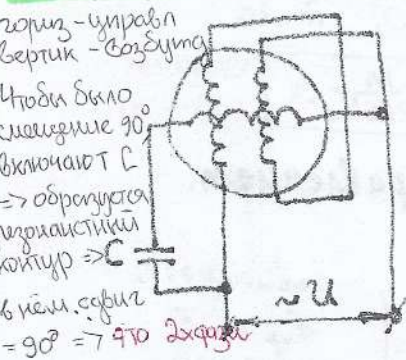 гориз - управл
вертик - возбужд
Чтобы было
смещение 90°
включают C
=> образуется
резонансный
контур =>
C
в нём. сдвиг
= 90° => это 2хфазн
~U